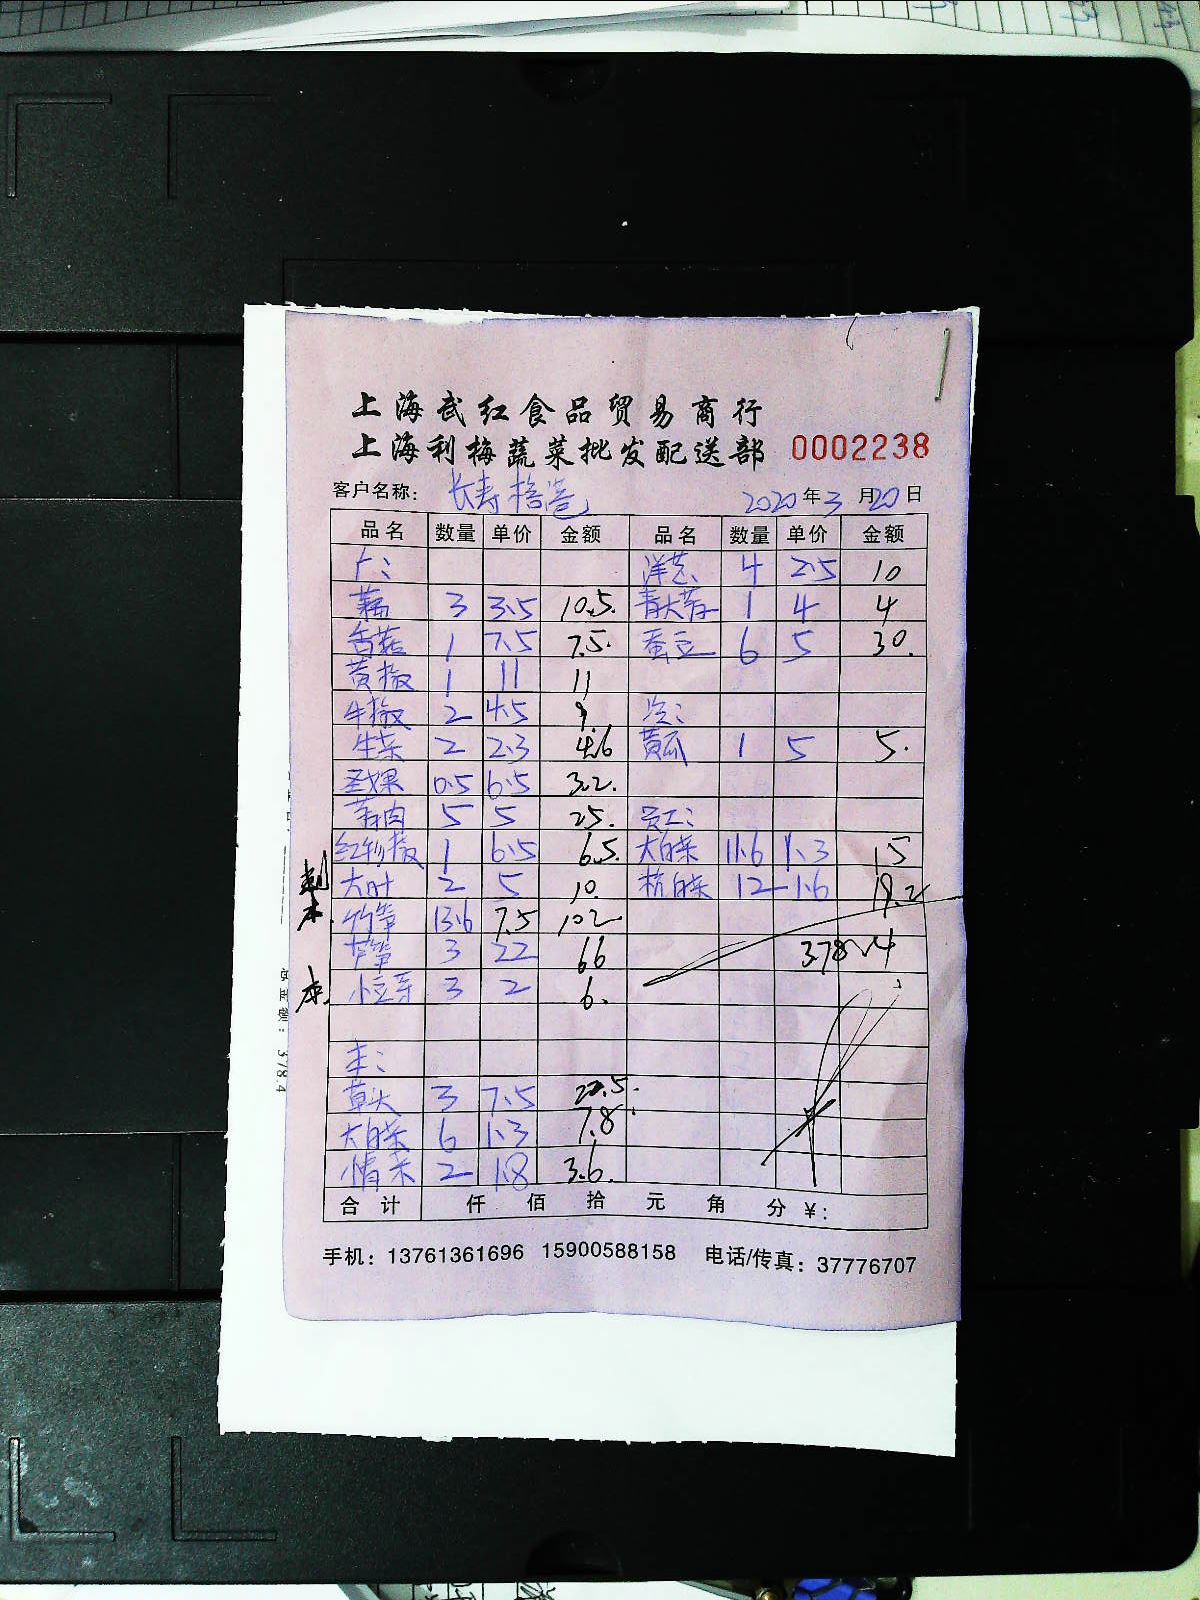 上海武红食品贸易商行
上海利梅蔬菜批发配送部 0002238
客户名称: 长寿 2020年3月20日
品名 数量 单价 金额 品名 数量 单价 金额
洋芫 4 2.5 10
藕 3 3.5 10.5 青大蒜 1 4 4
香菇 1 7.5 7.5 蚕豆 6 5 30
黄椒 1 11 11
牛椒 2 4.5 9
生菜 2 2.3 4.6 黄瓜 1 5 5
圣女果 0.5 6.5 3.2
蒜肉 5 5 25 员工:
红杭椒 1 6.5 6.5 大白菜 11.6 1.3 15
大叶 2 5 10 杭白菜 12 1.6 19.2
竹笋 13.6 7.5 102
芦笋 3 22 66 378.4
3 2 6
本:
草头 3 7.5 22.5
大白菜 6 1.3 7.8
2 1.8 3.6
合计 仟 佰 拾 元 角 分 ¥:
手机: 13761361696 15900588158 电话/传真: 37776707
378.4